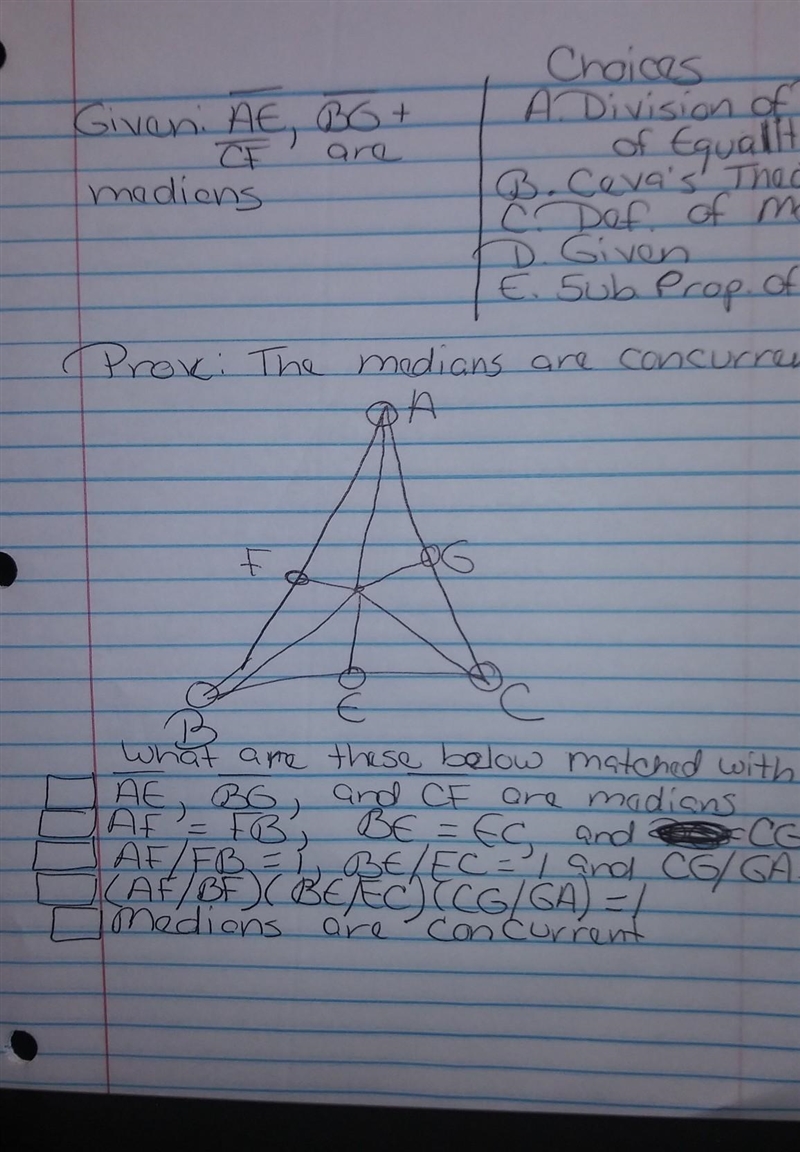 Given: AE, BG +
CF are
medians
Choices
A. Division of
of Equalit
B. Ceva's Theo
C. Def. of M
D. Given
E. Sub Prop. of
Prove: The medians are concurren
A
F
G
B
E
C
What are these below matched with
AE, BG, and CF are medians
AF = FB, BE = EC, and =CG
AF/FB = 1, BE/EC = 1 and CG/GA
(AF/BF)(BE/EC)(CG/GA) = 1
Medians are concurrent